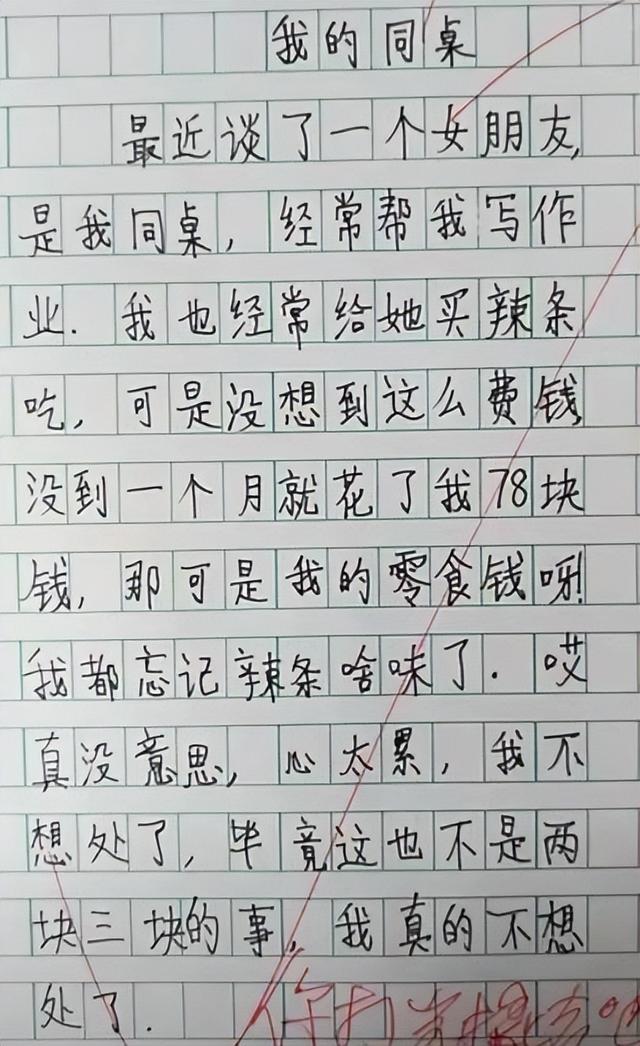 我的同桌
最近谈了一个女朋友,
是我同桌,经常帮我写作
业.我也经常给她买辣条
吃,可是没想到这么费钱,
没到一个月就花了我78块
钱,那可是我的零食钱呀!
我都忘记辣条啥味了.哎
真没意思,心太累,我不
想处了,毕竟这也不是两
块三块的事,我真的不想
处了.